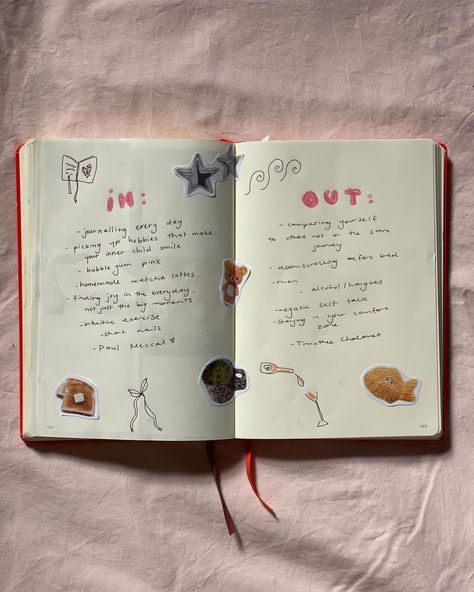 in:
- journalling every day
- picking up hobbies that make
your inner child smile
- bubble gum pink
- homemade matcha lattes
- finding joy in the everyday,
not just the big moments
- intuitive exercise
- short nails
- Paul Mescal
OUT:
- comparing yourself
to others not on the same
journey
- doomscrolling before bed
- men - alcohol/hangovers
- negative self talk
- staying in your comfort
zone
- Timothee Chalamet